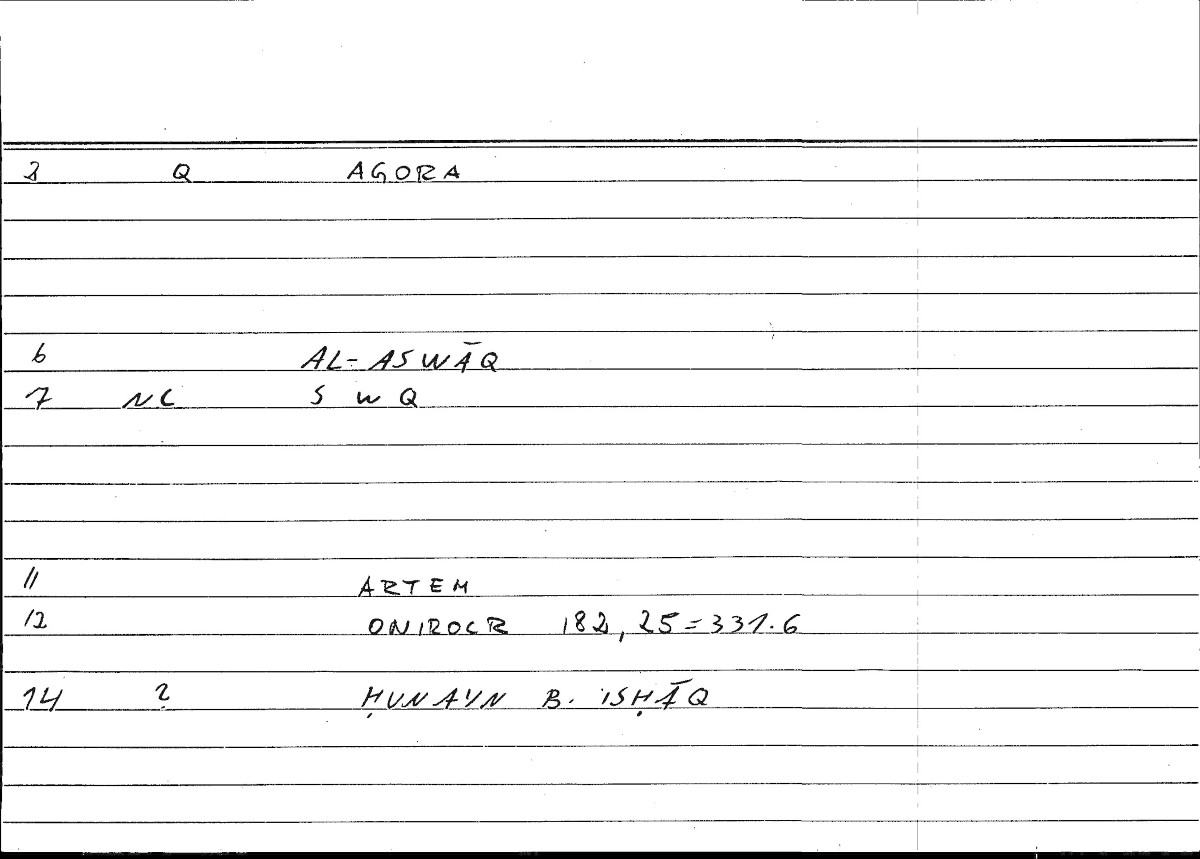 2 Q AGORA
6 AL-ASWĀQ
7 NC S W Q
11 ARTEM
12 ONIROCR 182,25=331.6
14 ? ḤUNAYN B. ISḤĀQ